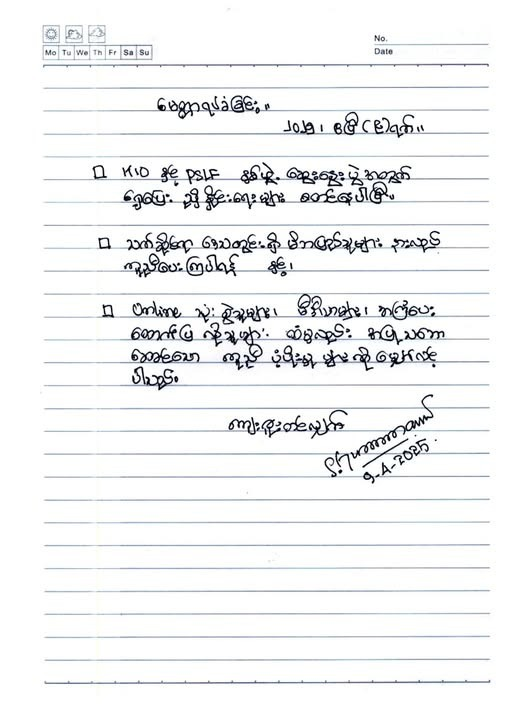 No.
Date
Mo Tu We Th Fr Sa Su
မေတ္တာရပ်ခံခြင်း။
၂၀၂၅၊ ဧပြီ (၉) ရက်။
KIO နှင့် PSLF နှစ်ဖွဲ့ ဆွေးနွေးပွဲ အတွက်
ရှေ့ပြေး ညှိနှိုင်းရေးများ စတင်နေပါပြီ။
သက်ဆိုင်ရာ ဒေသတွင်းရှိ မိဘပြည်သူများ နားလည်
ကူညီပေးကြပါရန် နှင့်၊
Online သုံးစွဲသူများ၊ မီဒီယာများ၊ အကြံပေး
ထောက်ပြလိုသူများ လည်း အပြုသဘော
ဆောင်သော ကူညီပံ့ပိုးမှုများကို မျှော်လင့်
ပါသည်။
ကျေးဇူးတင်လျှက်
9-4-2025